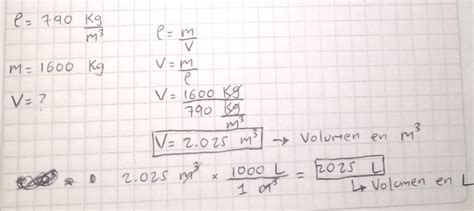 ρ = 790 Kg/m³
m = 1600 Kg
V = ?
ρ = m/V
V = m/ρ
V = 1600 Kg / 790 Kg/m³
V = 2.025 m³ → Volumen en m³
2.025 m³ × 1000 L / 1 m³ = 2025 L
↳ Volumen en L